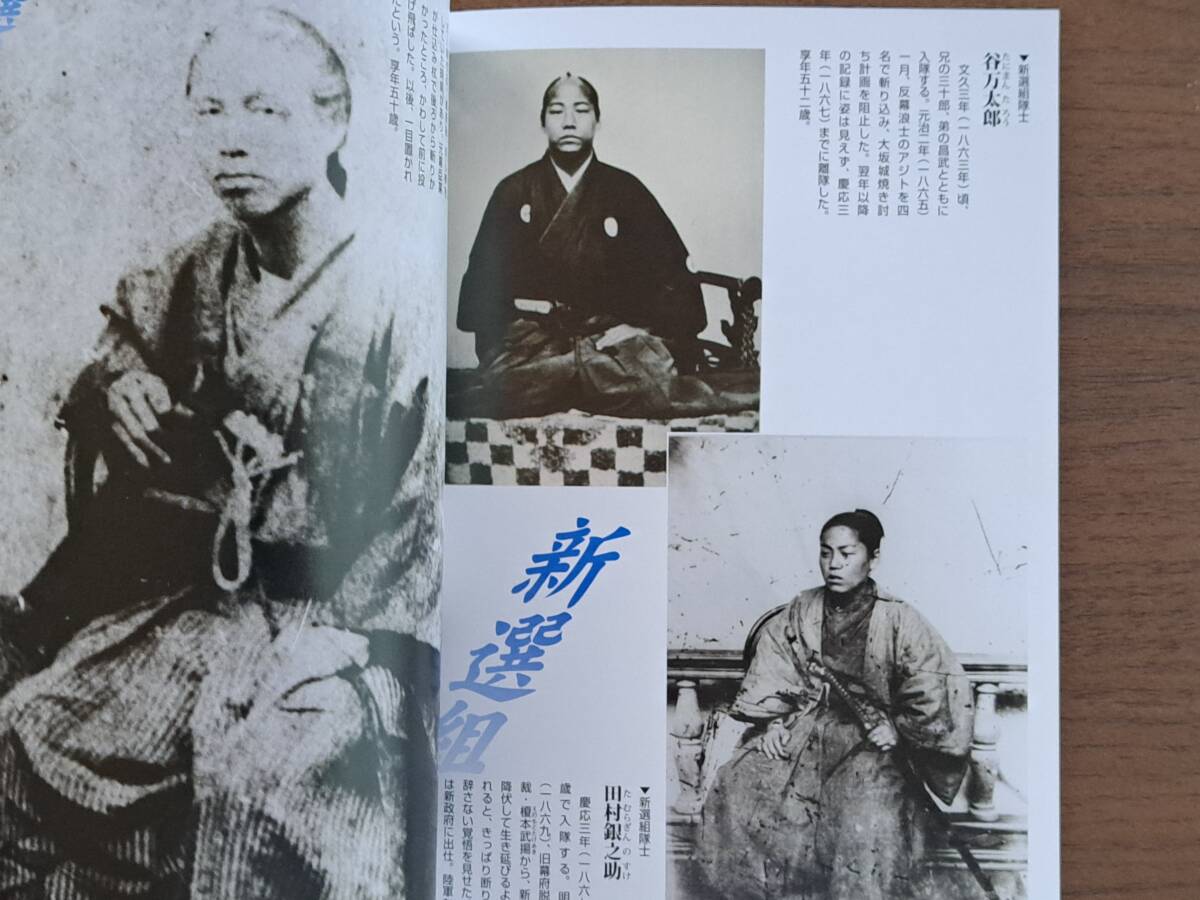 ▼新選組隊士
谷万太郎
たにまんたろう
文久三年（一八六三年）頃、
兄の三十郎、弟の昌武とともに
入隊する。元治二年（一八六五）
一月、反幕浪士のアジトを四
名で斬り込み、大坂城焼き討
ち計画を阻止した。翌年以降
の記録に姿は見えず、慶応三
年（一八六七）までに離隊した。
享年五十二歳。
新選組
▼新選組隊士
田村銀之助
たむらぎんのすけ
慶応三年（一八六
歳で入隊する。明
（一八六九）、旧幕府脱
裁・榎本武揚から、新
えのもとたけあき
降伏して生き延びるよ
れると、きっぱり断り
辞さない覚悟を見せた
は新政府に出仕。陸軍
選
が仕込み杖で後ろから斬りか
かったところ、かわして前に投
げ飛ばした。以後、一目置かれ
たという。享年五十歳。